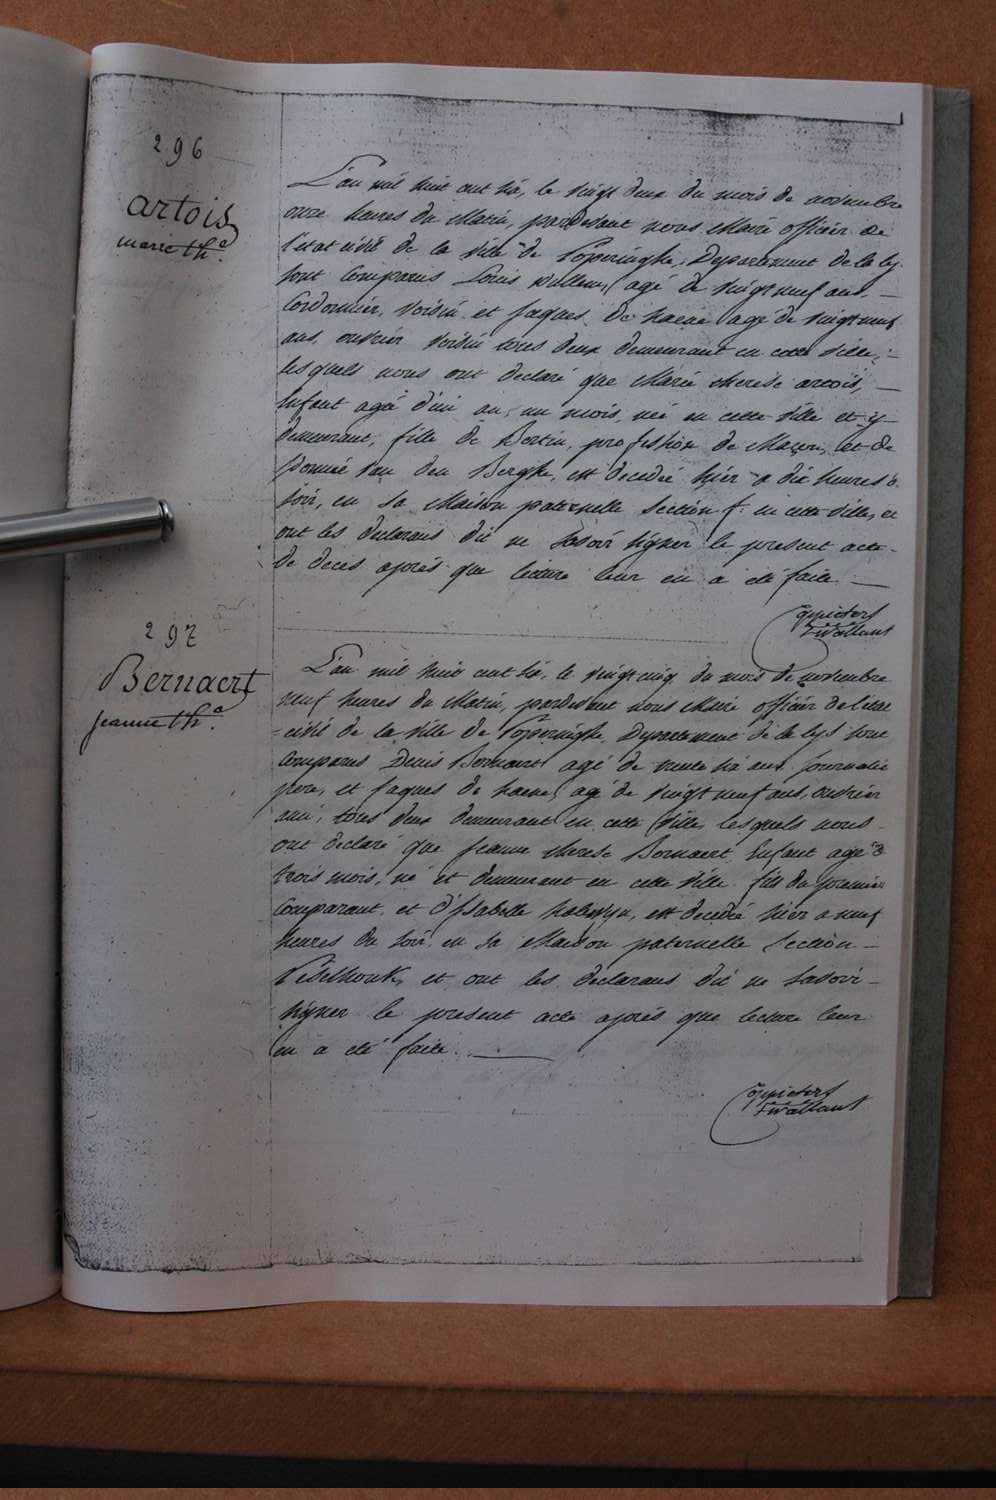 296
artois
marie th.ᵃ
L'an mil huit cent six, le vingt deux du mois de novembre
onze heures du Matin, pardevant nous Maire officier de
l'etat civil de la ville de Poperinghe, Departement de la lys
sont comparus Louis Willem, agé de vingt neuf ans,
Cordonnier, voisin et Jaques De haene agé de vingt neuf
ans, ouvrier voisin tous deux demeurant en cette ville,
lesquels nous ont declaré que Marie therese artois,
Enfant agée d'un an, un mois, née en cette ville et y
demeurant, fille de Bertin, profession de Maçon, et de
van den Berghe, est decedée hier a dix heures d
soir, en sa Maison paternelle Section f. en cette ville, et
ont les declarans dit ne savoir signer le present acte
de deces aprés que lecture leur en a été faite
297
Bernaert
jeanne th.ᵃ
L'an mil huit cent six, le vingt cinq du mois de novembre
neuf heures du Matin, pardevant nous Maire officier de l'etat
civil de la ville de Poperinghe, Departement de la lys sont
comparus Denis Bernaert agé de trente six ans Journalie
pere, et Jaques de haene, agé de vingt neuf ans, ouvrier
ami, tous deux demeurant en cette ville, lesquels nous
ont declaré que Jeanne therese Bernaert Enfant agé d
trois mois, né et demeurant en cette ville fille du premier
Comparant, et d'Isabelle, est decedée hier a neuf
heures du soir, en sa Maison paternelle Section
et ont les declarans dit ne savoir
signer le present acte aprés que lecture leur
en a été faite.